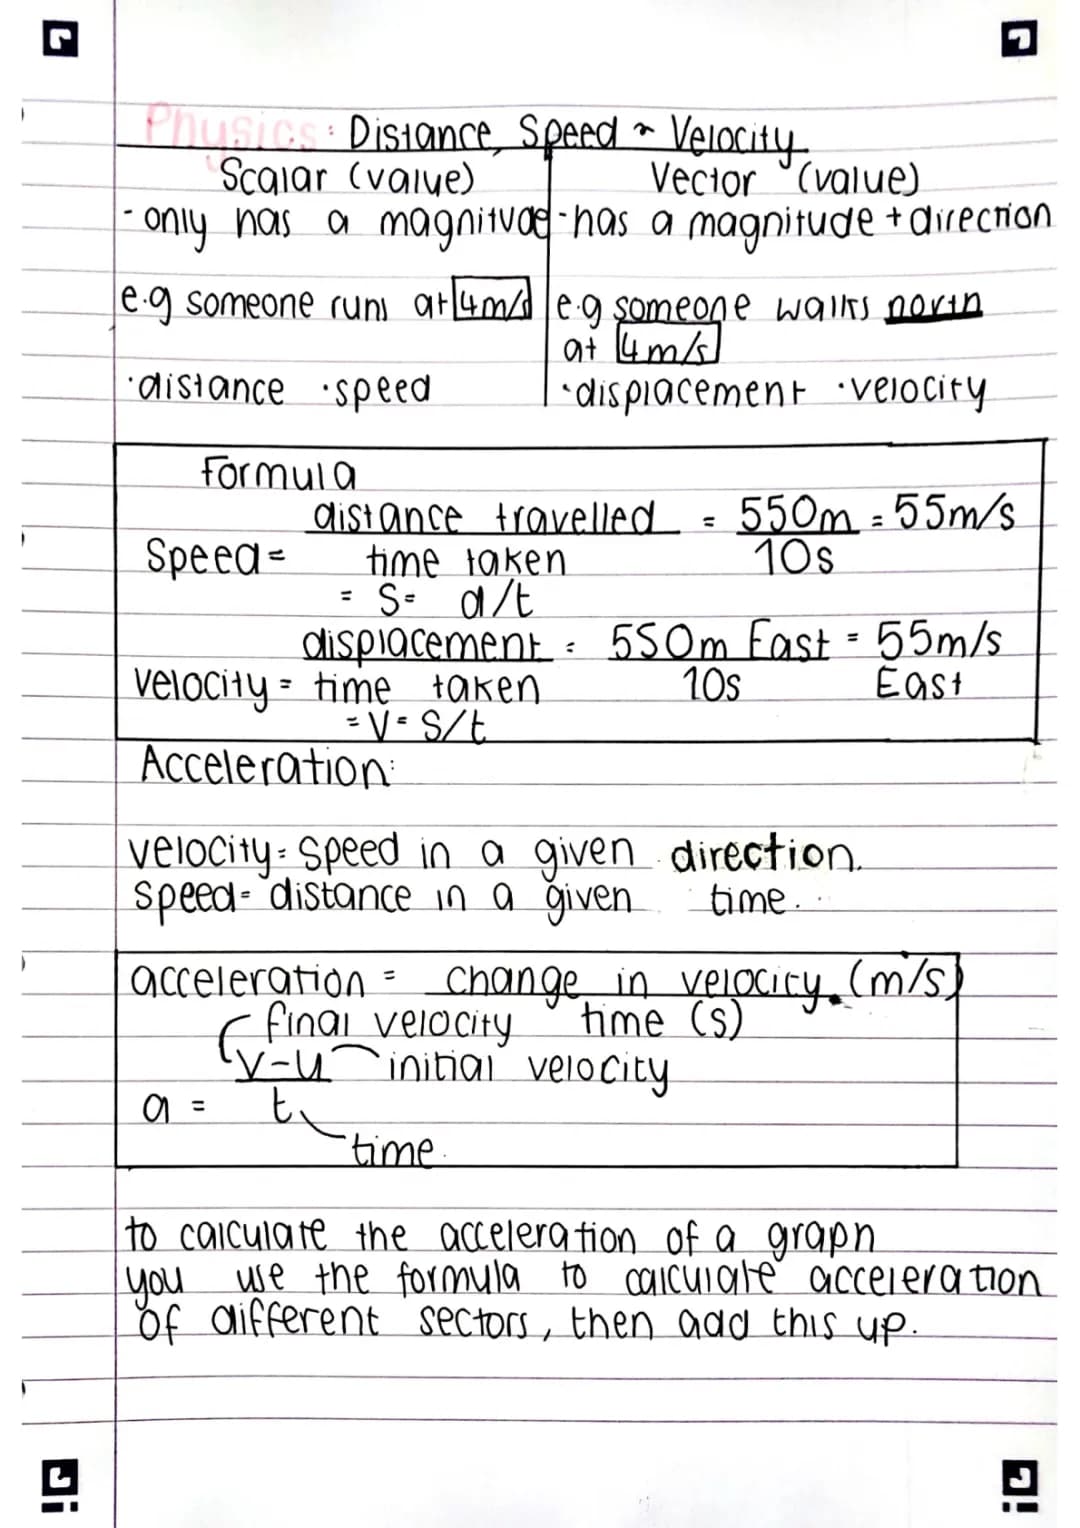 Physics: Distance, Speed & Velocity
Scalar (value)
- only has a magnitude
e.g someone runs at 4m/s
·distance ·speed
Vector (value)
-has a magnitude + direction
e.g someone walks north
at 4m/s
·displacement ·velocity
Formula
Speed = distance travelled / time taken = 550m / 10s = 55m/s
= S= d/t
velocity = displacement / time taken = 550m East / 10s = 55m/s East
= V = S/t
Acceleration:
velocity = speed in a given direction.
speed = distance in a given time.
acceleration = change in velocity (m/s)
time (s)
final velocity
v-u initial velocity
a = t
time.
to calculate the acceleration of a graph
you use the formula to calculate acceleration
of different sectors, then add this up.